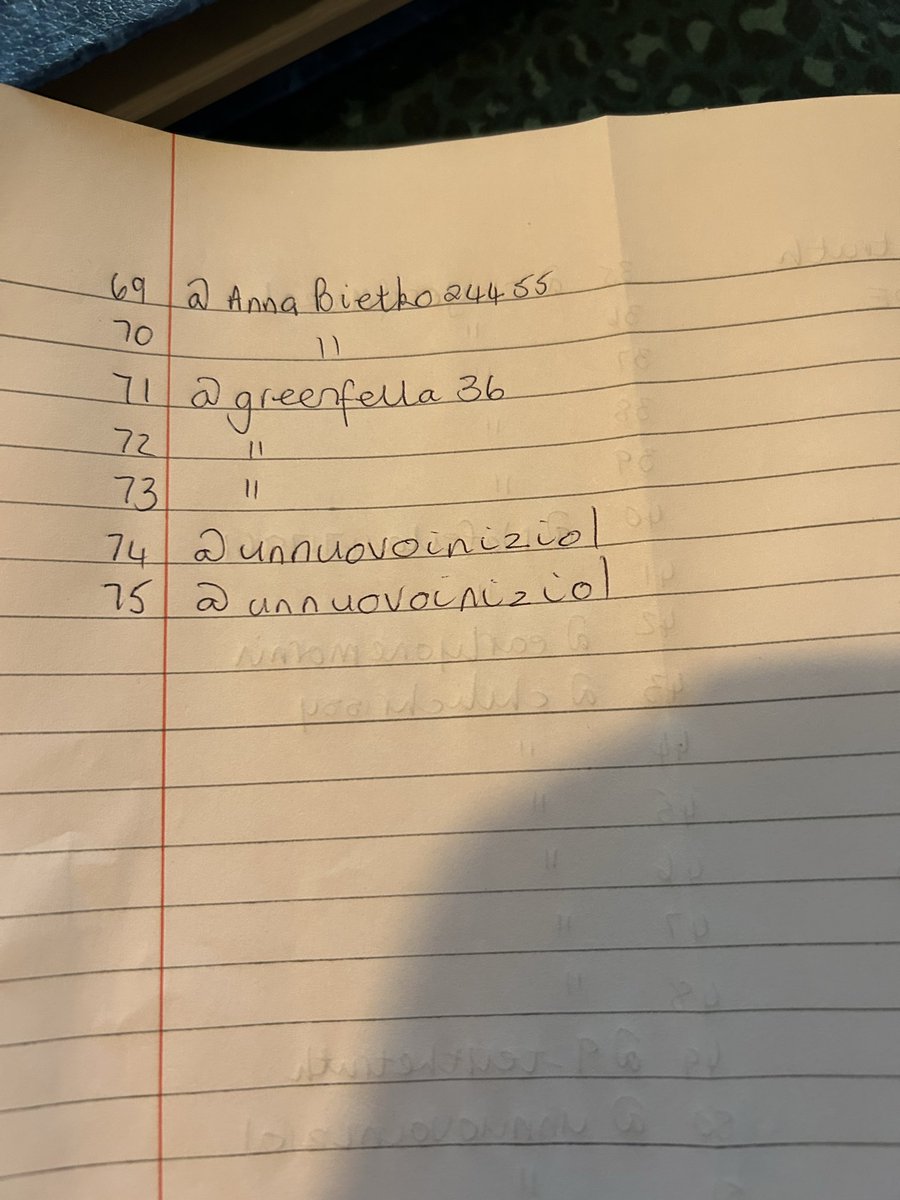 69 @ Anna Bietko 24455
70 "
71 @ greenfella 36
72 "
73 "
74 @ unnuovoinizio1
75 @ unnuovoinizio1